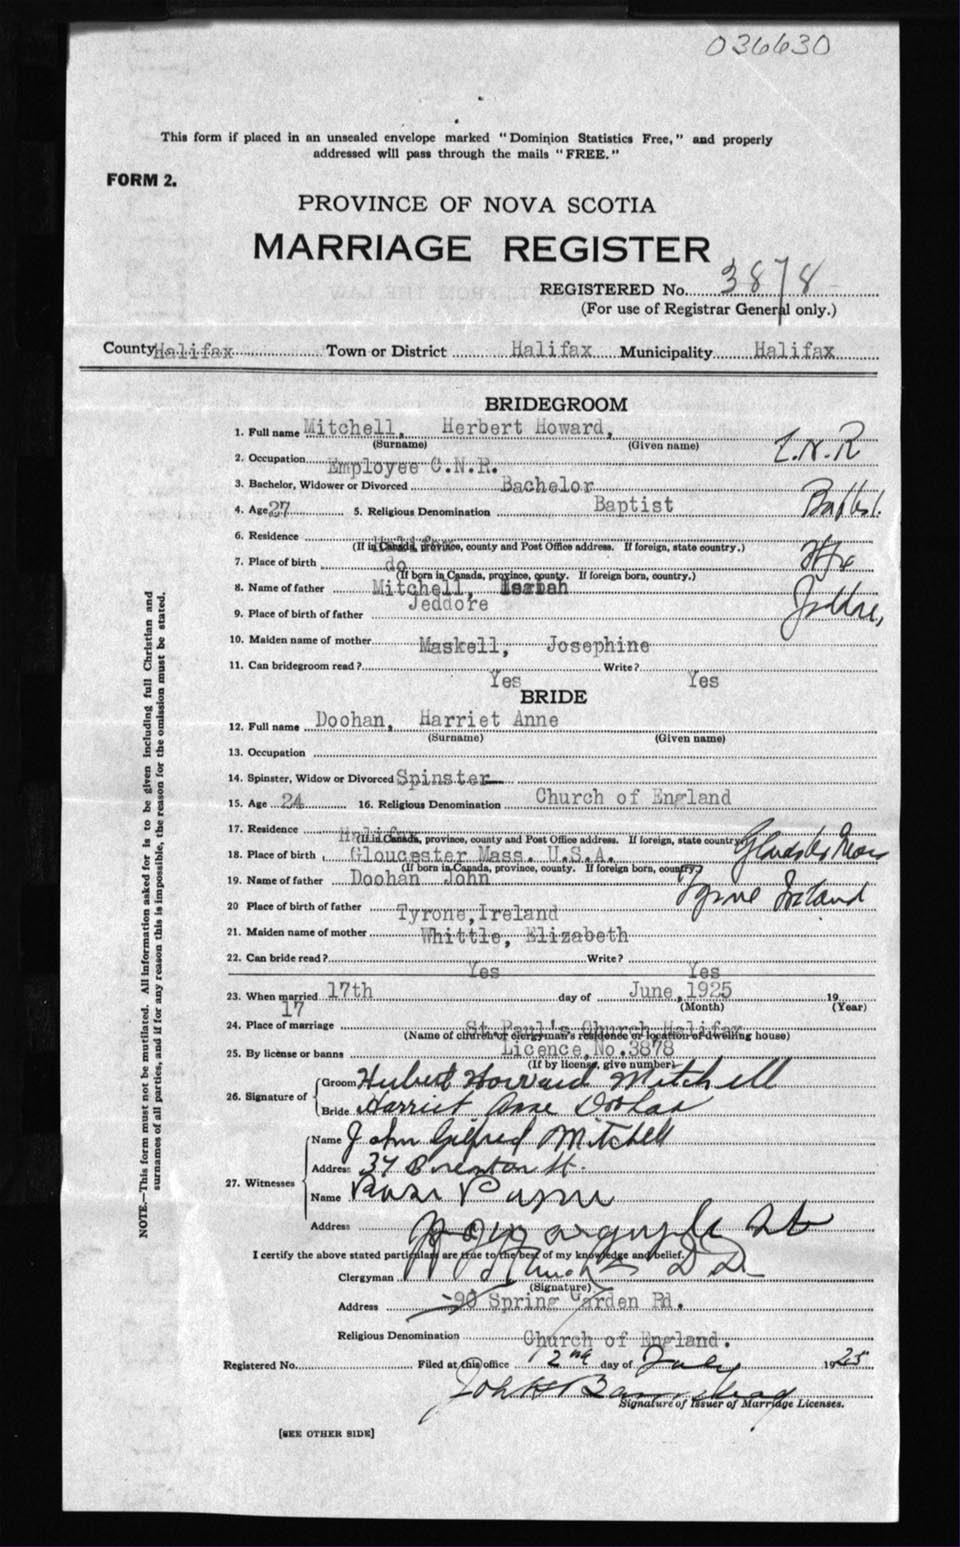 036630
This form if placed in an unsealed envelope marked "Dominion Statistics Free," and properly
addressed will pass through the mails "FREE."
FORM 2.
PROVINCE OF NOVA SCOTIA
MARRIAGE REGISTER
REGISTERED No. 3878
(For use of Registrar General only.)
County Halifax Town or District Halifax Municipality Halifax
BRIDEGROOM
1. Full name Mitchell, Herbert Howard,
(Surname) (Given name)
C.N.R
2. Occupation Employee C.N.R.
3. Bachelor, Widower or Divorced Bachelor
4. Age 27 5. Religious Denomination Baptist Baptist.
6. Residence
(If in Canada, province, county and Post Office address. If foreign, state country.)
7. Place of birth do Hfx
(If born in Canada, province, county. If foreign born, country.)
8. Name of father Mitchell, Isaiah
9. Place of birth of father Jeddore Jeddore,
10. Maiden name of mother Maskell, Josephine
11. Can bridegroom read? Yes Write? Yes
BRIDE
12. Full name Doohan, Harriet Anne
(Surname) (Given name)
13. Occupation
14. Spinster, Widow or Divorced Spinster
15. Age 24 16. Religious Denomination Church of England
17. Residence Halifax
(If in Canada, province, county and Post Office address. If foreign, state country.)
18. Place of birth Gloucester Mass. U.S.A. Gloucester Mass
(If born in Canada, province, county. If foreign born, country.)
19. Name of father Doohan John
20 Place of birth of father Tyrone, Ireland Tyrone Ireland
21. Maiden name of mother Whittle, Elizabeth
22. Can bride read? Yes Write? Yes
23. When married 17th day of June, 1925 19
17 (Month) (Year)
24. Place of marriage St Paul's Church Halifax
(Name of church or clergyman's residence or location of dwelling house)
25. By license or banns Licence No. 3878
(If by license, give number)
26. Signature of Groom Herbert Howard Mitchell
Bride Harriet Anne Doohan
27. Witnesses Name John Gilfred Mitchell
Address 37 Brenton St.
Name Rose Payne
Address
I certify the above stated particulars are true to the best of my knowledge and belief.
Clergyman D.D.
(Signature)
Address 90 Spring Garden Rd.
Religious Denomination Church of England.
Registered No. Filed at this office 2nd day of July 1925
Signature of Issuer of Marriage Licenses.
[SEE OTHER SIDE]
NOTE.—This form must not be mutilated. All information asked for is to be given including full Christian and
surnames of all parties, and if for any reason this is impossible, the reason for the omission must be stated.